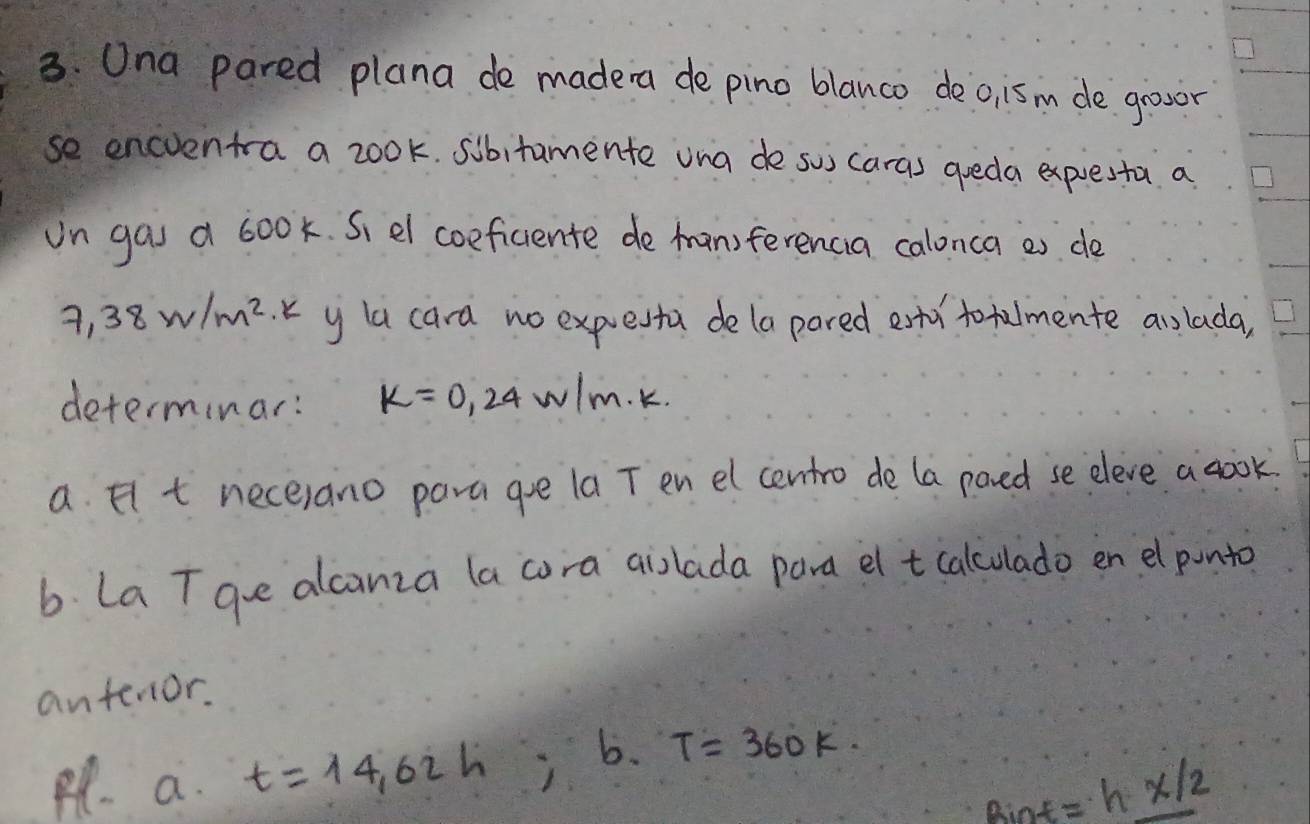 3. Una pared plana de madera de pino blanco de 0,15m de grosor
se encuentra a 200K. Súbitamente una de sus caras queda expuesta a
un gas a 600K. Si el coeficiente de transferencia calorica es de
7,38 W/m².K y la cara no expuesta de la pared está totalmente aislada,
determinar: K=0,24 W/m.K.
a. El t necesario para que la T en el centro de la pared se eleve a 400K.
b. La T que alcanza la cara aislada para el t calculado en el punto
anterior.
R/. a. t=14,62h ; b. T=360K.
Bint = h x/2